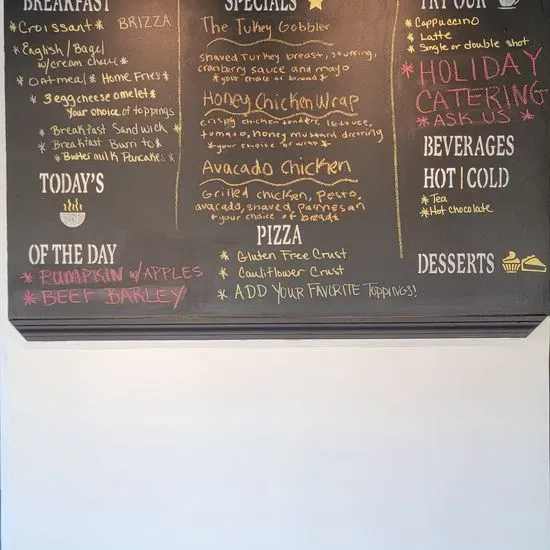 BREAKFAST
*Croissant* BRIZZA
*English/Bagel
w/cream cheese*
*Oatmeal* Home Fries*
*3 egg cheese omelet*
Your choice of toppings
*Breakfast Sandwich*
*Breakfast Burrito*
*Buttermilk Pancakes*
TODAY'S
OF THE DAY
*PUMPKIN w/APPLES
*BEEF BARLEY
SPECIALS
The Turkey Gobbler
shaved turkey breast, stuffing,
cranberry sauce and mayo
*your choice of bread*
Honey Chicken Wrap
crispy chicken tenders, lettuce,
tomato, honey mustard dressing
*your choice of wrap*
Avacado Chicken
Grilled chicken, pesto,
avocado, shaved parmesan
*your choice of bread*
PIZZA
*Gluten Free Crust
*Cauliflower Crust
*ADD YOUR FAVORITE TOPPINGS!
TRY OUR
*Cappuccino
*Latte
*Single or double shot
*HOLIDAY
CATERING
*ASK US*
BEVERAGES
HOT|COLD
*Tea
*Hot chocolate
DESSERTS